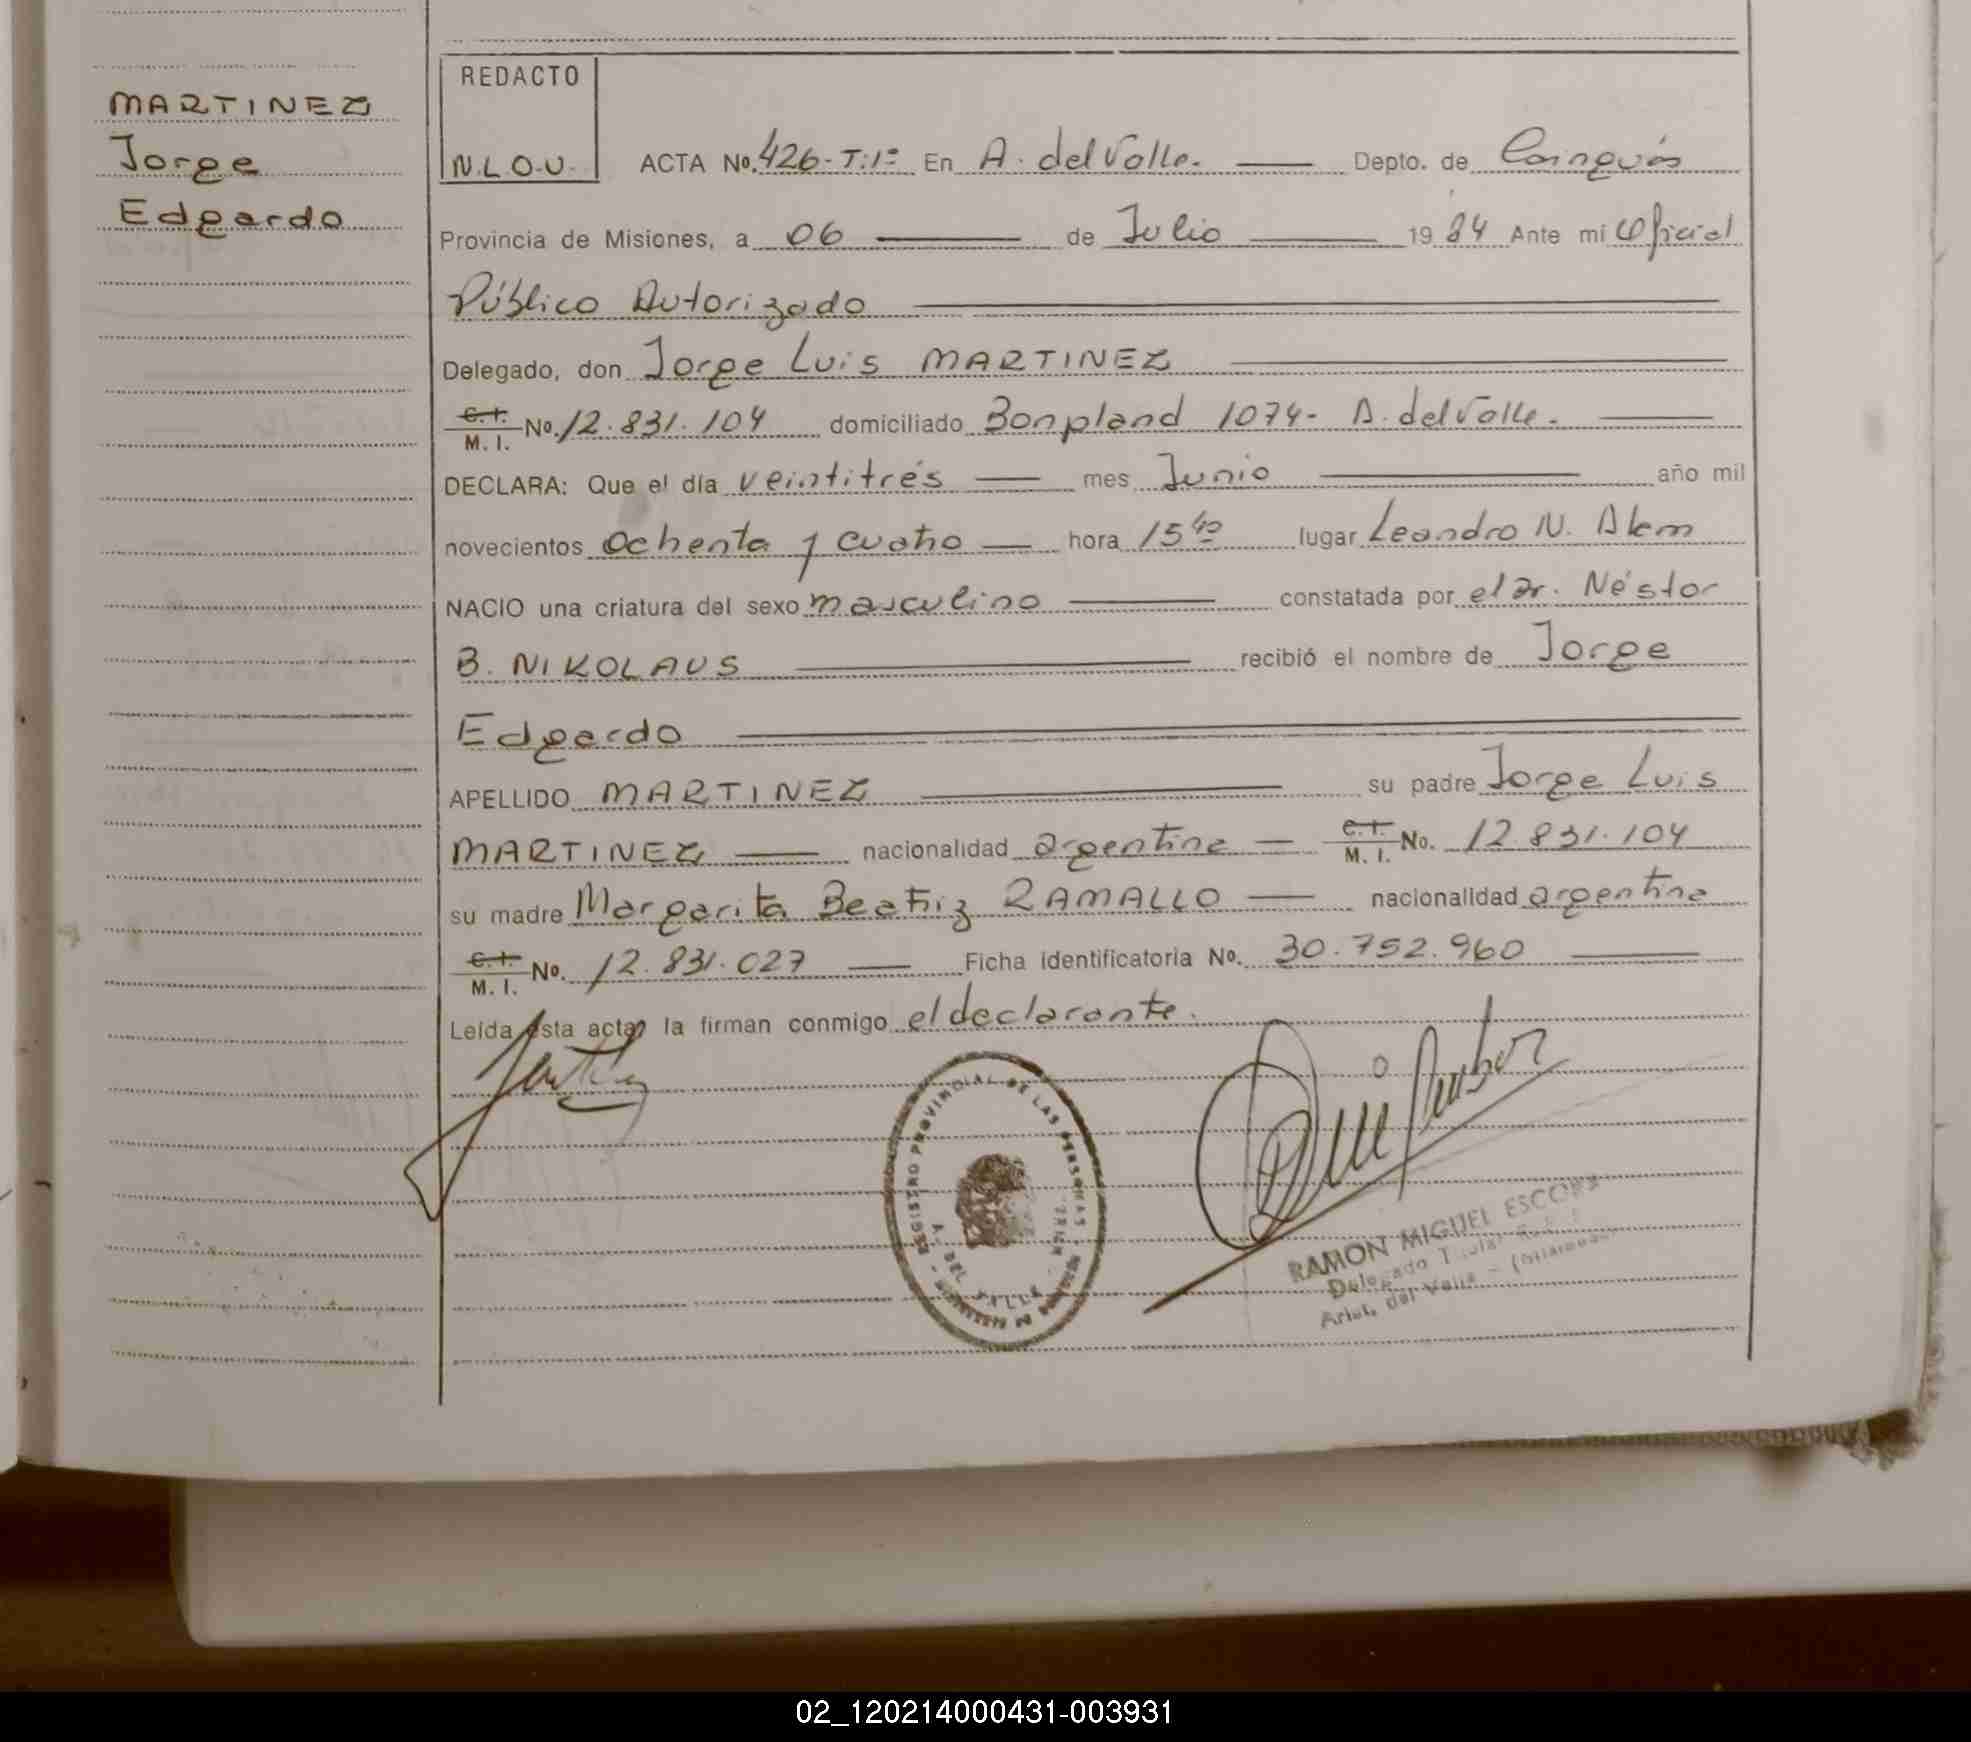 MARTINEZ
Jorge
Edgardo
REDACTO
N.L.O.U.
ACTA No. 426-T:1º En A. del Valle. Depto. de Cainguás
Provincia de Misiones, a 06 de Julio 1984 Ante mi Oficial
Público Autorizado
Delegado, don Jorge Luis MARTINEZ
C.I. M.I. No. 12.831.104 domiciliado Bonpland 1074- A. del Valle.
DECLARA: Que el día veintitrés mes Junio año mil
novecientos ochenta y cuatro hora 15 40 lugar Leandro N. Alem
NACIO una criatura del sexo masculino constatada por el Dr. Néstor
B. NIKOLAUS recibió el nombre de Jorge
Edgardo
APELLIDO MARTINEZ su padre Jorge Luis
MARTINEZ nacionalidad argentina C.I. M.I. No. 12.831.104
su madre Margarita Beatriz RAMALLO nacionalidad argentina
C.I. M.I. No. 12.831.027 Ficha identificatoria No. 30.752.960
Leída esta acta, la firman conmigo el declarante.
REGISTRO PROVINCIAL DE LAS PERSONAS
A. DEL VALLE
RAMON MIGUEL ESCOBAR
Delegado Titular
Arist. del Valle - (Misiones)
02_120214000431-003931